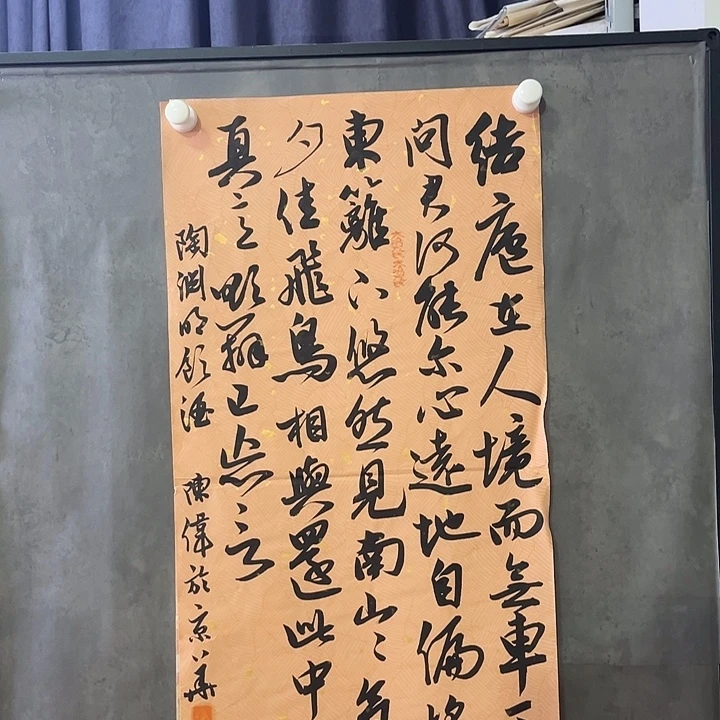 結廬在人境而無車
問君何能爾心遠地自偏
東籬下悠然見南山々氣
夕佳飛鳥相與還此中
真意欲辨已忘言
陶淵明飲酒 陳偉於京華